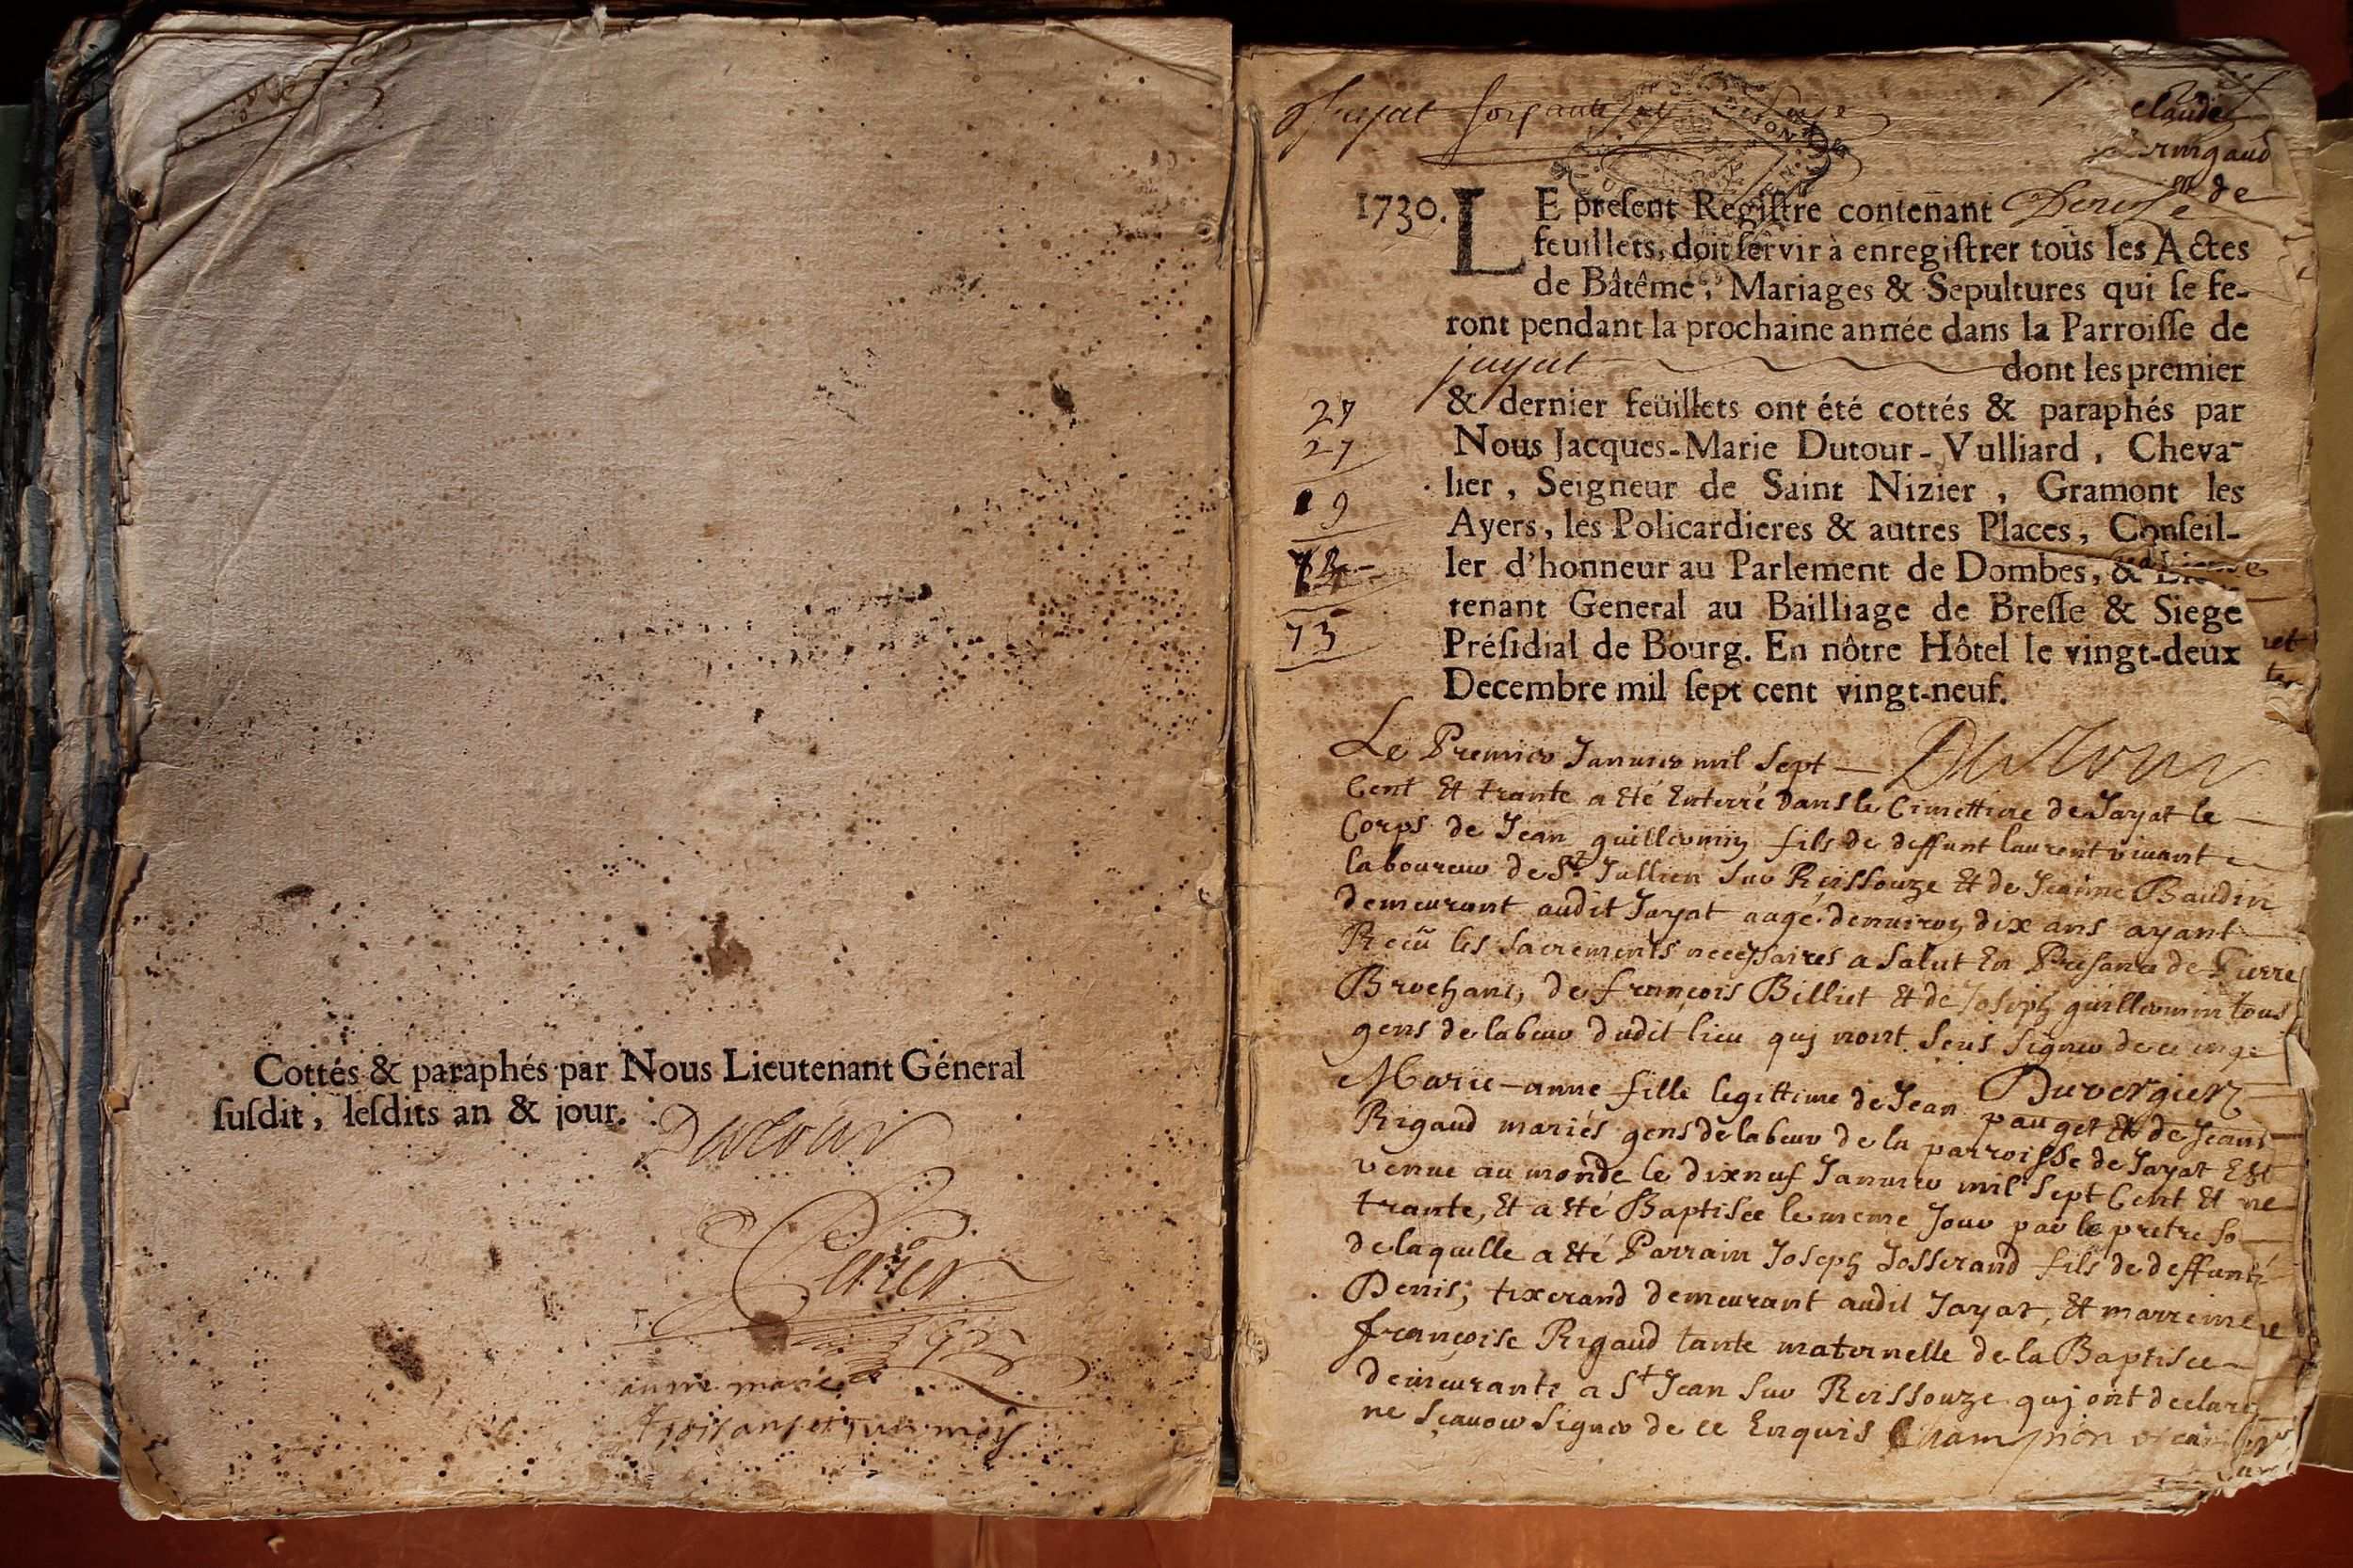 Cottés & paraphés par Nous Lieutenant Géneral
ſuſdit, leſdits an & jour.
Dutour
Perier
anne marie
4 trois ans et un mois
Jayat soixante
claude
1730. LE preſent Regiſtre contenant de
feuillets, doit ſervir à enregiſtrer tous les Actes
de Bâtême, Mariages & Sepultures qui ſe fe-
ront pendant la prochaine année dans la Parroiſſe de
jayat dont les premier
& dernier feüillets ont été cottés & paraphés par
Nous Jacques-Marie Dutour-Vulliard, Cheva-
lier, Seigneur de Saint Nizier, Gramont les
Ayers, les Policardieres & autres Places, Conſeil-
ler d'honneur au Parlement de Dombes, & Lieu-
tenant General au Bailliage de Breſſe & Siege
Préſidial de Bourg. En nôtre Hôtel le vingt-deux
Decembre mil ſept cent vingt-neuf.
27
27
19
73
Dutour
Le Premier Januier mil Sept
Cent Et trante a Eté Enterré dans le Cimettiere de Jayat le
Corps de Jean guilleomin fils de deffunt laurent viuant
laboureur de St Jullien Sur Reissouze Et de Jeanne Baudin
demeurant audit Jayat aagé denuiron dix ans ayant
Reçu les Sacrements necessaires a Salut En Presance de Pierre
Brochant, de françois Billiet Et de Joseph guilleomin tous
gens de labeur dudit lieu quj nont Seus Signer de ce enqe
Duvergier
Marie-anne fille legittime de Jean pauget Et de Jeanne
Rigaud mariés gens de labeur de la parroisse de Jayat Est
venue au monde le dixneuf Januier mil Sept Cent Et
trante, Et a Eté Baptisée le meme Jour par le pretre So
de laquelle a Eté Parrain Joseph Josserand fils de deffunt
Denis, tixerand demeurant audit Jayat, Et marreine
françoise Rigaud tante maternelle de la Baptisée
demeurante a St Jean Sur Reissouze quj ont declaré
ne Sçauoir Signer de ce Enquis Champion vicaire